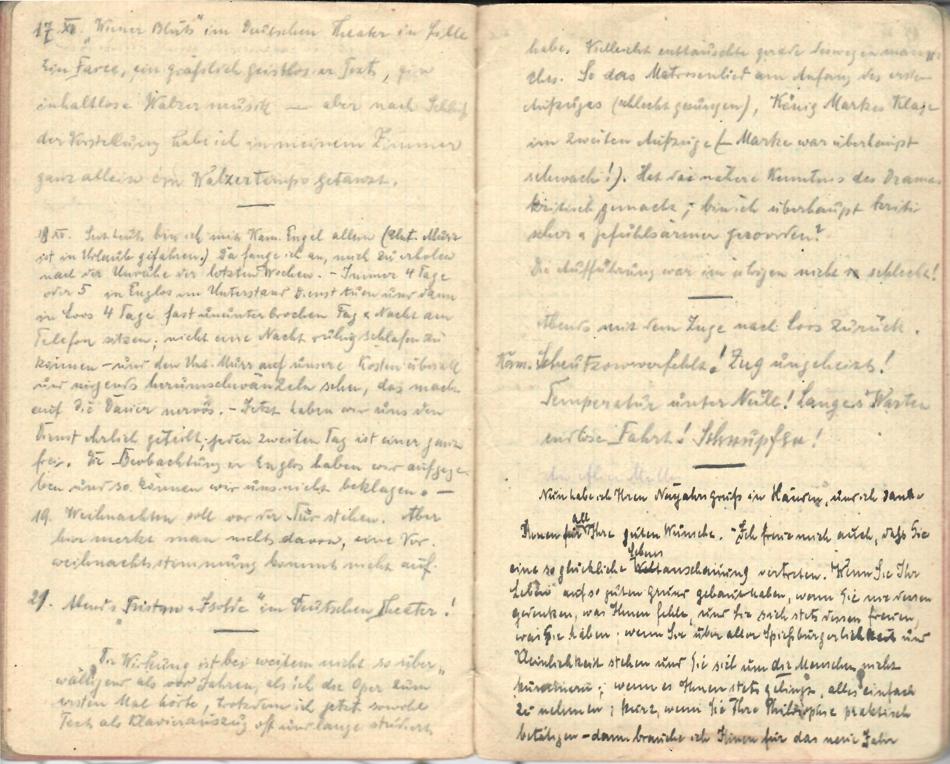 17. XII. "Wiener Blut" im Deutschen Theater in Lille
Eine Farce, ein gräßlich geistloser Text, eine
inhaltlose Walzermusik — aber nach Schluß
der Vorstellung habe ich in meinem Zimmer
ganz allein ein Walzertempo getanzt.
18 XII. Seit heute bin ich mit Kam. Engel allein (Unt. Murr
ist in Urlaub gefahren.) Da fange ich an, mich zu erholen
nach der Unruhe der letzten Wochen. – Immer 4 Tage
oder 5 in Englos im Unterstand Dienst tuen und dann
in Loos 4 Tage fast ununterbrochen Tag & Nacht am
Telefon sitzen; nicht eine Nacht ruhig schlafen zu
können – und den Unt. Murr auf unsere Kosten überall
und nirgends herumschwänzeln sehen, das macht
auf die Dauer nervös. – Jetzt haben wir uns den
Dienst ehrlich geteilt; jeden zweiten Tag ist einer ganz
frei. Die Beobachtung in Englos haben wir aufgege-
ben und so können wir uns nicht beklagen. —
19. Weihnachten soll vor der Tür stehen. Aber
hier merkt man nichts davon, eine Vor-
weihnachtsstimmung kommt nicht auf.
21. Abends "Tristan & Isolde" im Deutschen Theater!
Die Wirkung ist bei weitem nicht so über-
wältigend als vor Jahren, als ich die Oper zum
ersten Mal hörte, trotzdem ich jetzt sowohl
Text als Klavierauszug oft und lange studiert
habe. Vielleicht enttäuschte gerade deswegen man
ches. So das Matrosenlied am Anfang des ersten
Aufzuges (schlecht gesungen), König Markes Klage
im zweiten Aufzuge (– Marke war überhaupt
schwach!). Hat die nähere Kenntnis des Dramas
kritisch gemacht; bin ich überhaupt kriti
scher & gefühlsärmer geworden?
Die Aufführung war im übrigen nicht schlecht!
Abends mit dem Zuge nach Loos zurück.
Kam. verfehlt! Zug ungeheizt!
Temperatur unter Null! Langes Warten
endlose Fahrt! Schnupfen!
Nun habe ich Ihren Neujahrsgruß in Händen und ich danke
Ihnen für all Ihre guten Wünsche. – Ich freue mich auch, daß Sie
eine so glückliche Lebensanschauung vertreten. Wenn Sie Ihr
Leben auf so guten Grund gebaut haben, wenn Sie nie dessen
gedenken, was Ihnen fehle, und Sie sich stets dessen freuen,
was Sie haben; wenn Sie über aller Spießbürgerlichkeit und
Kleinlichkeit stehen und Sie sich um die Menschen nicht
kümmern; wenn es Ihnen stets gelingt, alles einfach
zu nehmen; kurz, wenn Sie Ihre Philosophie praktisch
betätigen – dann brauche ich Ihnen für das neue Jahr